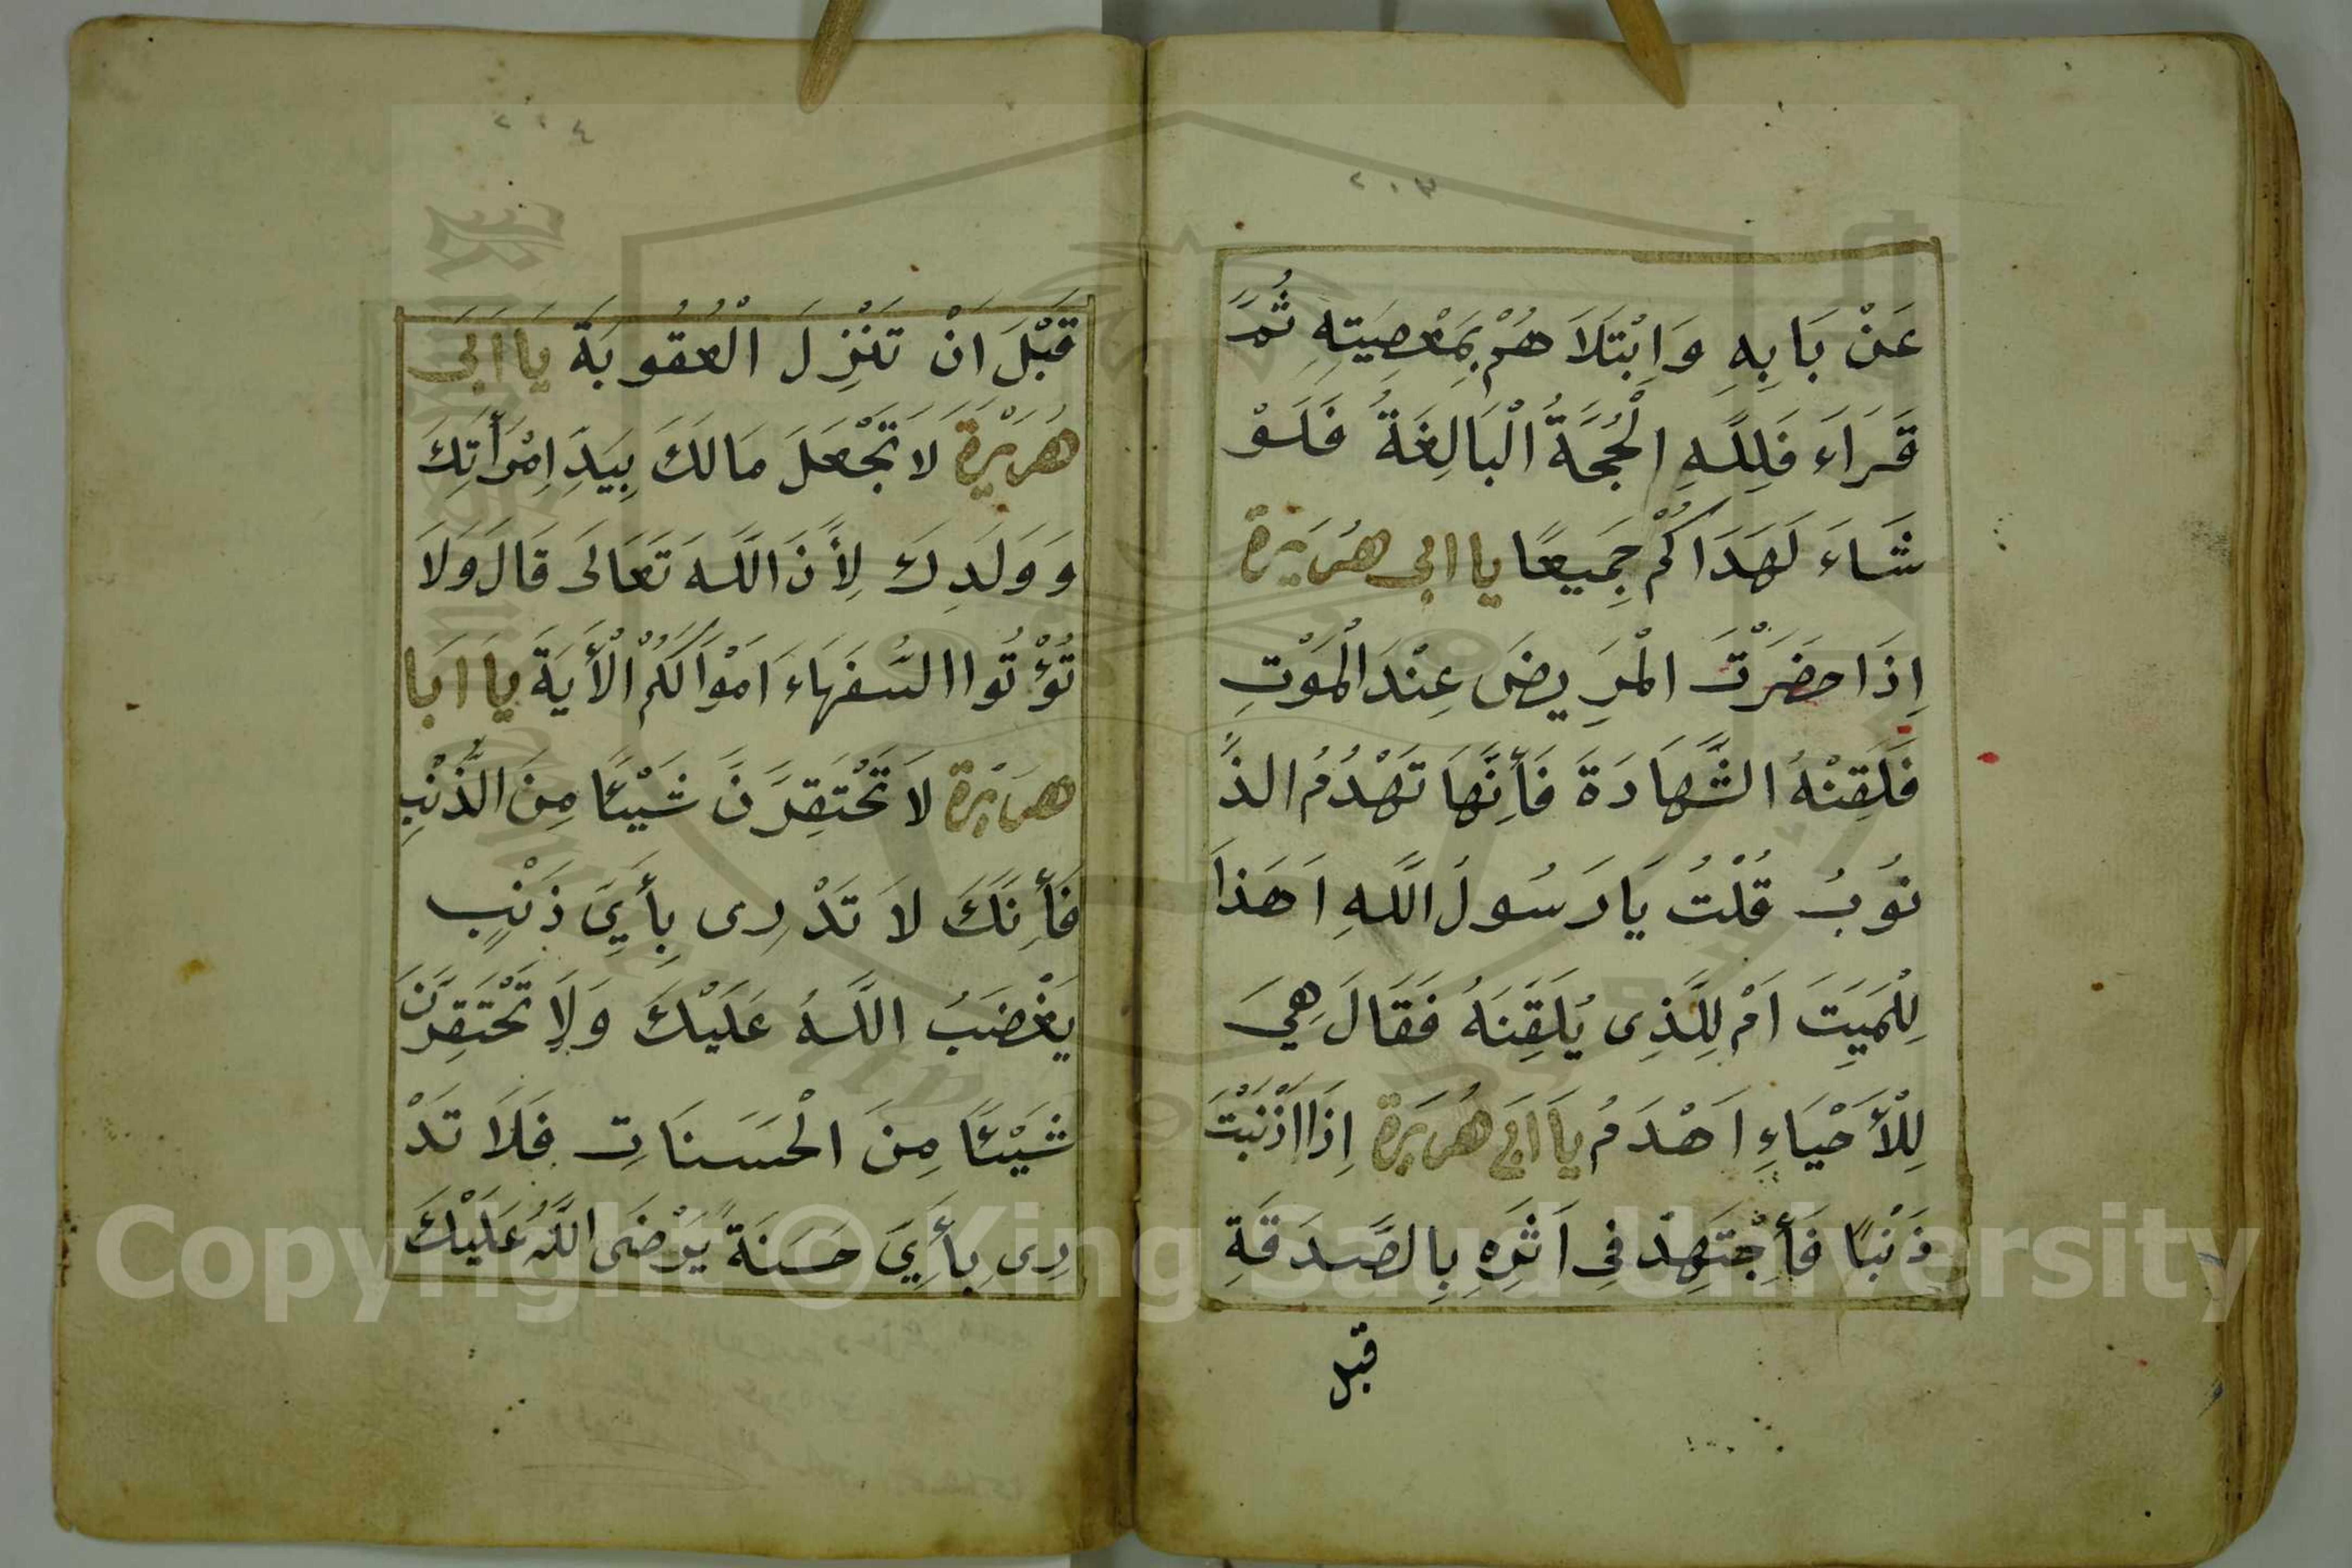 ٢٠٣
عَنْ بَابِهِ وَابْتَلَاهُمْ بِمَعْصِيَتِهِ ثُمَّ
قَرَاءَ فَلِلَّهِ الْحُجَّةُ الْبَالِغَةُ فَلَوْ
شَاءَ لَهَدَاكُمْ جَمِيعًا يا ابى هريرة
اِذَا حَضَرْتَ الْمَرِيضَ عِنْدَ الْمَوْتِ
فَلَقِّنْهُ الشَّهَادَةَ فَأِنَّهَا تَهْدُمُ الذُّ
نُوبُ قُلْتُ يَا رَسُولَ اللَّهِ اَهَذَا
لِلْمَيِّتَ اَمْ لِلَّذِى يُلَقِّنَهُ فَقَالَ هِيَ
لِلْأَحْيَاءِ اَهْدَمُ يَا اَبَى هُرَيْرَة اِذَا اَذْنَبْتَ
ذَنْبًا فَأِجْتَهِدْ فِى اَثَرِهِ بِالصَّدَقَةِ
قبل
٢٠٤
قَبْلَ اَنْ تَنْزِلَ الْعُقُوبَةَ يَا اَبَى
هُرَيْرَة لَا تَجْعَلَ مَالَكَ بِيَدِ اِمْرَأَتِكَ
وَوَلَدِكَ لِأَنَّ اللَّهَ تَعَالَى قَالَ وَلَا
تُؤْتُوا السُّفَهَاءَ اَمْوَالَكُمْ الْأَيَةَ يَا اَبَا
هريرة لَا تَحْتَقِرَنَّ شَيْئًا مِنَ الذَّنْبِ
فَأِنَّكَ لَا تَدْرِى بِأَيِّ ذَنْبٍ
يَغْضَبُ اللَّهُ عَلَيْكَ وَلَا تَحْتَقِرَنَّ
شَيْئًا مِنَ الْحَسَنَاتِ فَلَا تَدْ
رِى بِأَيِّ حَسَنَةً يَرْضَى اللَّهُ عَلَيْكَ
Copyright © King Saud University